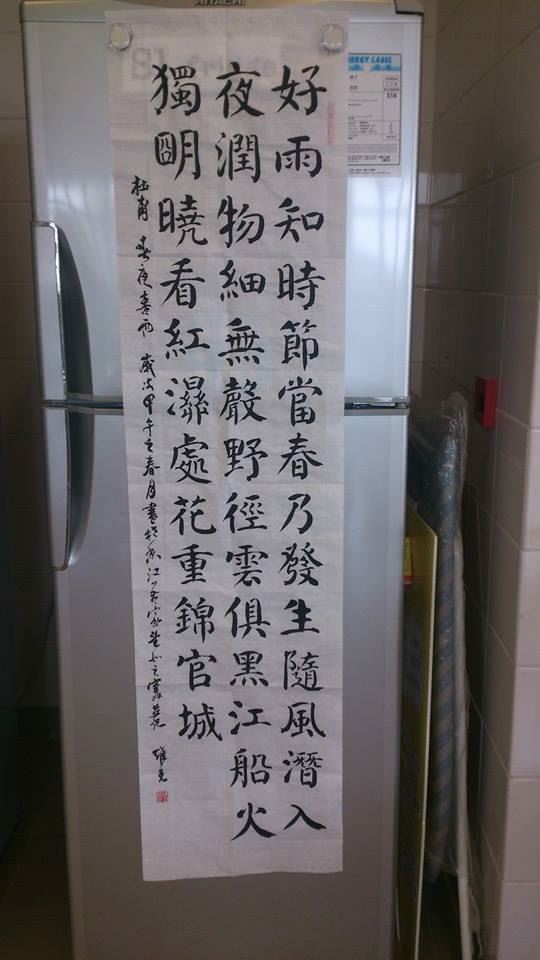 HITACHI
ENERGY LABEL
好雨知時節當春乃發生隨風潛入
夜潤物細無聲野徑雲俱黑江船火
獨朙曉看紅濕處花重錦官城
杜甫 春夜喜雨 歲次甲午之春月書於香江